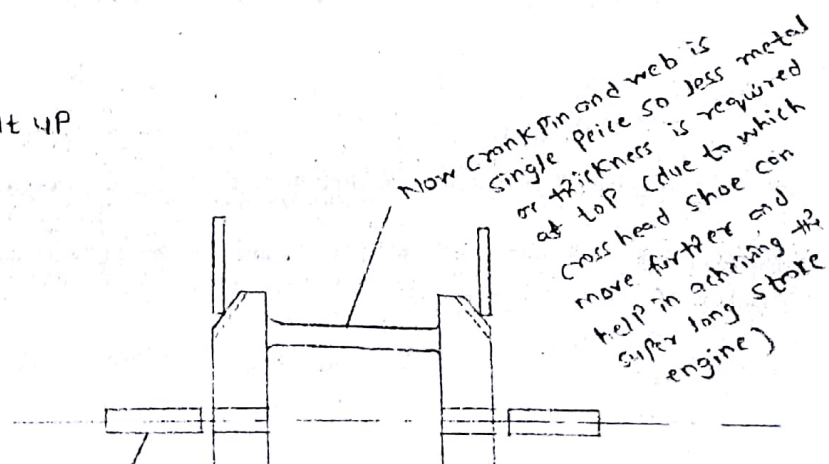 lt up
Now Crank Pin and web is
single Peice so less metal
or thickness is required
at top (due to which
cross head shoe can
move further and
help in acheiving the
super long stroke
engine)